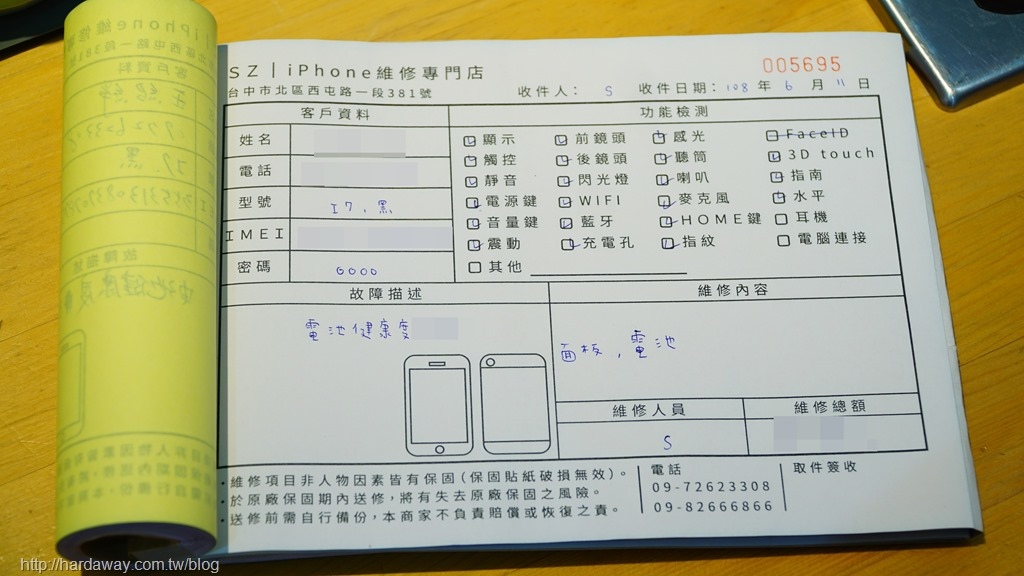 005695
SZ｜iPhone維修專門店
台中市北區西屯路一段381號 收件人： S 收件日期：108 年 6 月 11 日
客戶資料
姓名
電話
型號 I7，黑
IMEI
密碼 0000
功能檢測
顯示 前鏡頭 感光 FaceID
觸控 後鏡頭 聽筒 3D touch
靜音 閃光燈 喇叭 指南
電源鍵 WIFI 麥克風 水平
音量鍵 藍牙 HOME鍵 耳機
震動 充電孔 指紋 電腦連接
其他
故障描述
電池健康度
維修內容
面板，電池
維修人員 維修總額
S
・維修項目非人物因素皆有保固(保固貼紙破損無效)。
・於原廠保固期內送修，將有失去原廠保固之風險。
・送修前需自行備份，本商家不負責賠償或恢復之責。
電話
09-72623308
09-82666866
取件簽收
http://hardaway.com.tw/blog